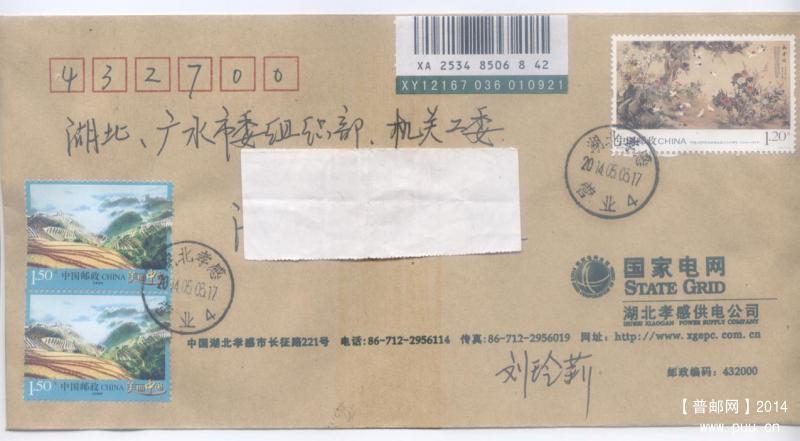 XA 2534 8506 8 42
XY12167 036 010921
432700
湖北、广水市委组织部、机关工委
中国邮政 CHINA
1.20元
湖北孝感
2014.05.05.17
营业 4
1.50元 中国邮政 CHINA
美丽中国
湖北孝感
2014.05.05.17
营业 4
1.50元 中国邮政 CHINA
美丽中国
国家电网
STATE GRID
湖北孝感供电公司
HUBEI XIAOGAN POWER SUPPLY COMPANY
中国湖北孝感市长征路221号 电话:86-712-2956114 传真:86-712-2956019 网址:http://www.xgepc.com.cn
邮政编码:432000
【普邮网】2014
www.puu.cn